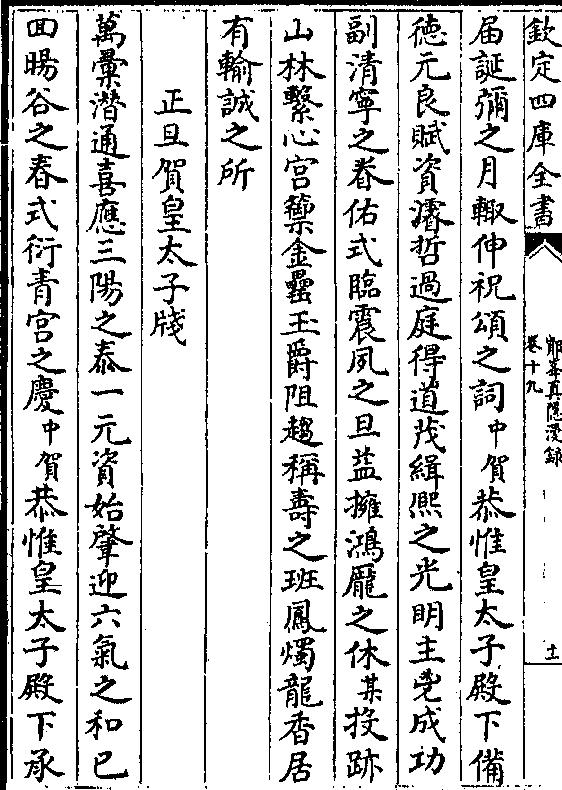 欽定四庫全書
鄮峯真隱漫錄
卷十九
十一
届誕彌之月輙伸祝頌之詞中賀恭惟皇太子殿下備
徳元良賦資濬哲過庭得道茂緝熙之光明主鬯成功
副清寧之眷佑式臨震夙之旦益擁鴻龎之休某投跡
山林繫心宫籞金罍玉爵阻趨稱壽之班鳳燭龍香居
有輸誠之所
正旦賀皇太子牋
萬彚潜通喜應三陽之泰一元資始肇迎六氣之和已
回暘谷之春式衍青宫之慶中賀恭惟皇太子殿下承